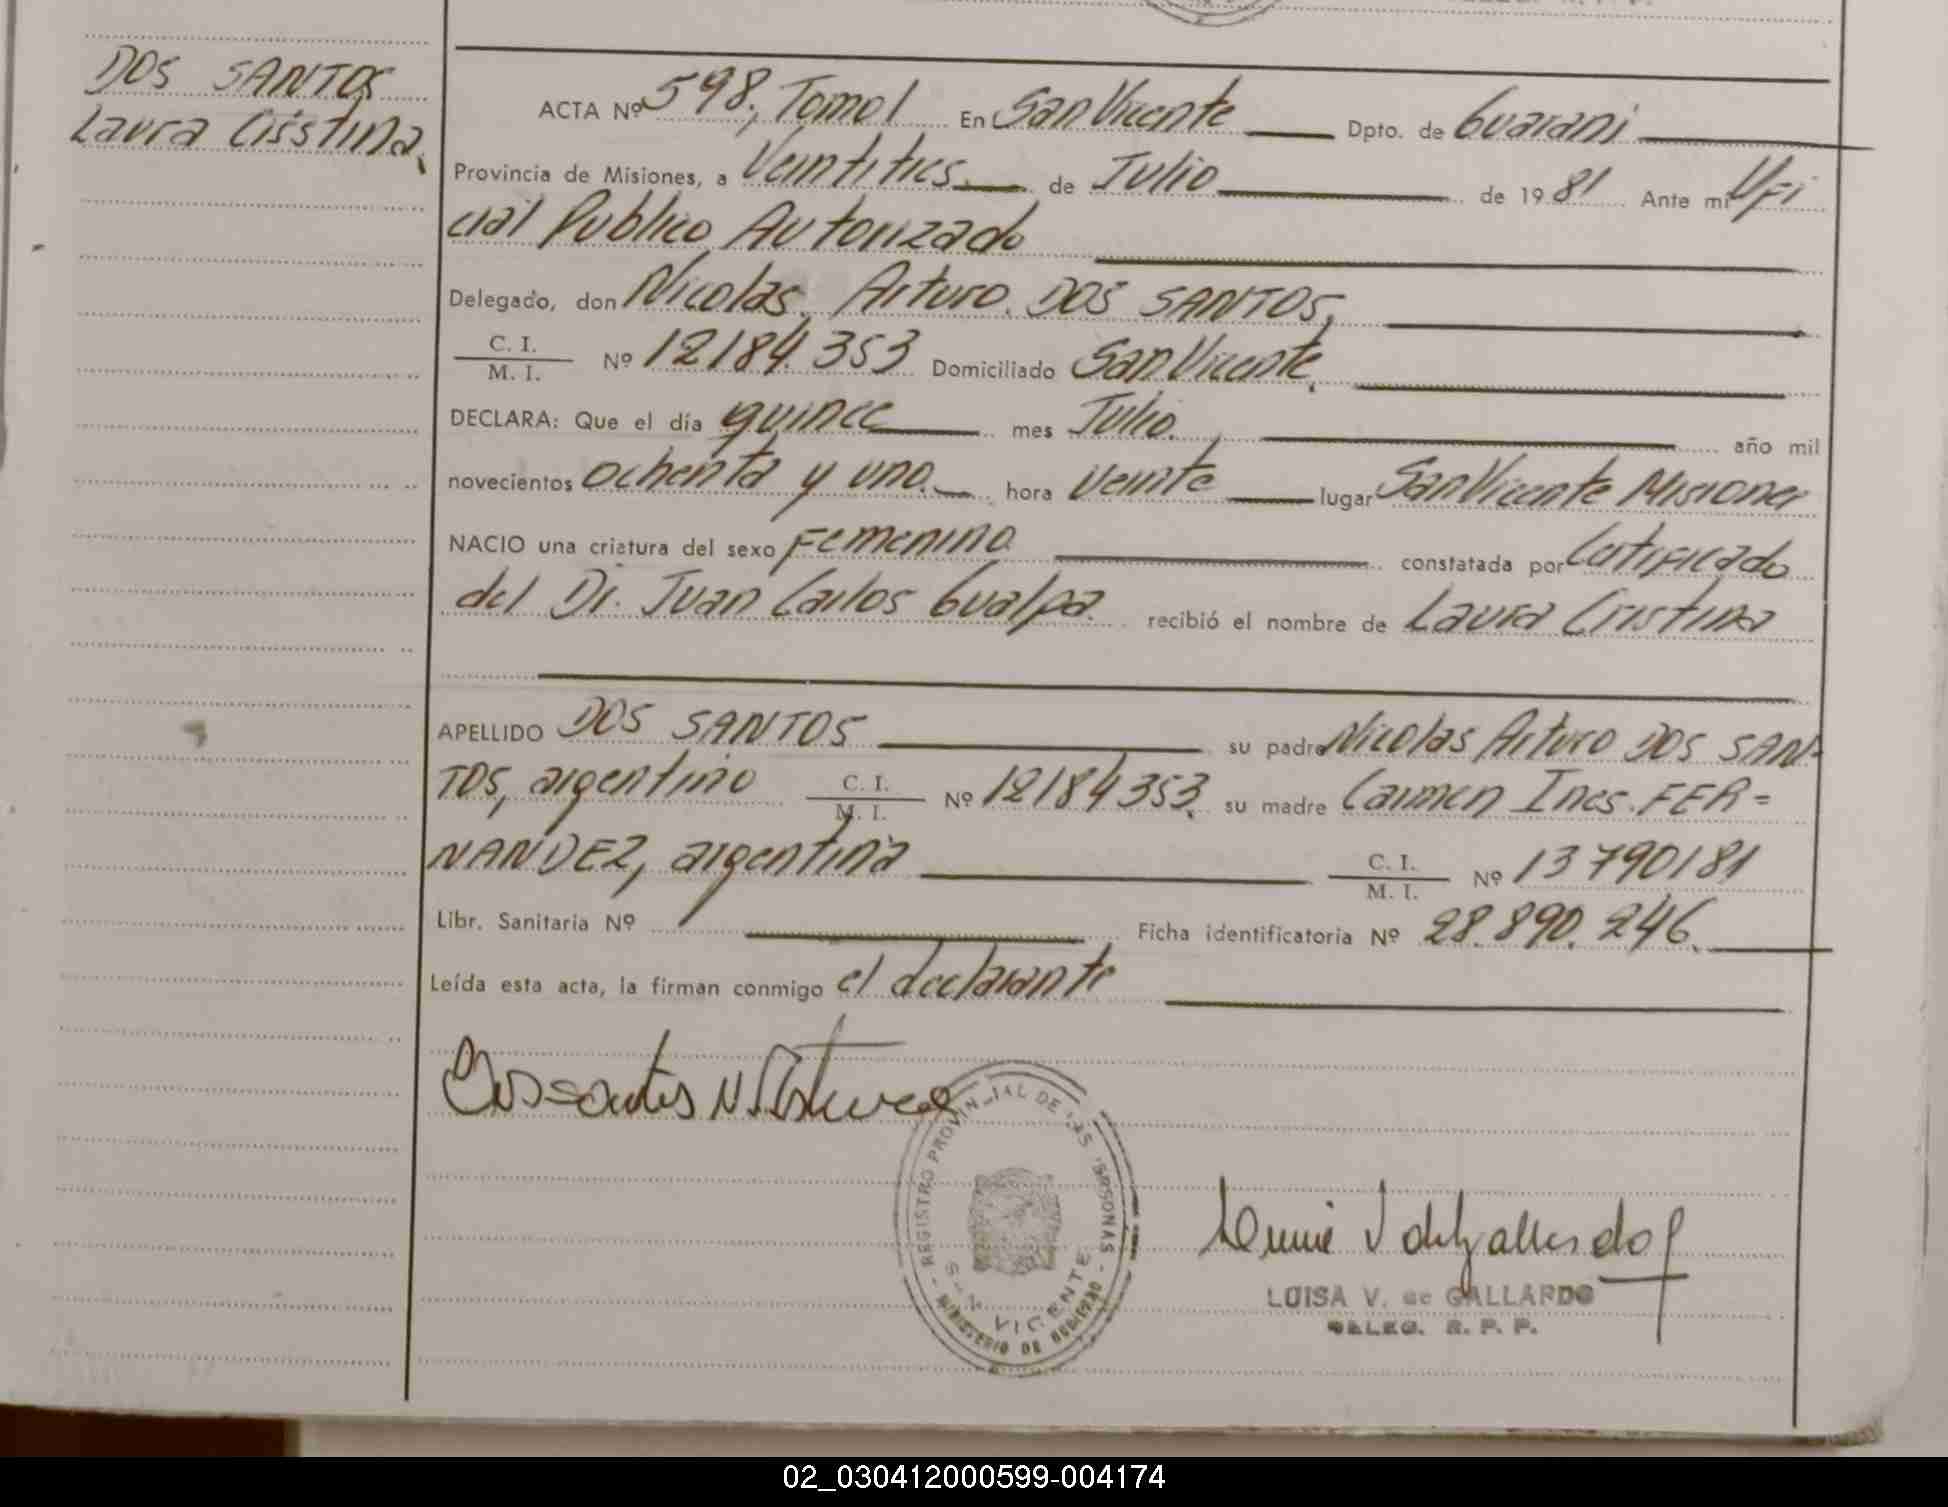 DOS SANTOS
Laura Cristina.
ACTA Nº 598, Tomo I En San Vicente Dpto. de Guarani
Provincia de Misiones, a Veintitres de Julio de 1981 Ante mi Ofi
cial Publico Autorizado
Delegado, don Nicolas Arturo DOS SANTOS,
C. I.
M. I. Nº 12184.353 Domiciliado San Vicente.
DECLARA: Que el día quince mes Julio. año mil
novecientos ochenta y uno. hora veinte lugar San Vicente Misiones
NACIO una criatura del sexo Femenino constatada por Certificado
del Dr. Juan Carlos Gualpa. recibió el nombre de Laura Cristina
APELLIDO DOS SANTOS su padre Nicolas Arturo DOS SAN-
TOS, argentino C. I. M. I. Nº 12184353. su madre Carmen Ines. FER=
NANDEZ, argentina C. I. M. I. Nº 13790181
Libr. Sanitaria Nº Ficha identificatoria Nº 28.890.246.
Leída esta acta, la firman conmigo el declarante
Dos santos N Arturo
REGISTRO PROVINCIAL DE LAS PERSONAS
SAN VICENTE
MINISTERIO DE GOBIERNO
LUISA V. de GALLARDO
DELEG. R. P. P.
02_030412000599-004174